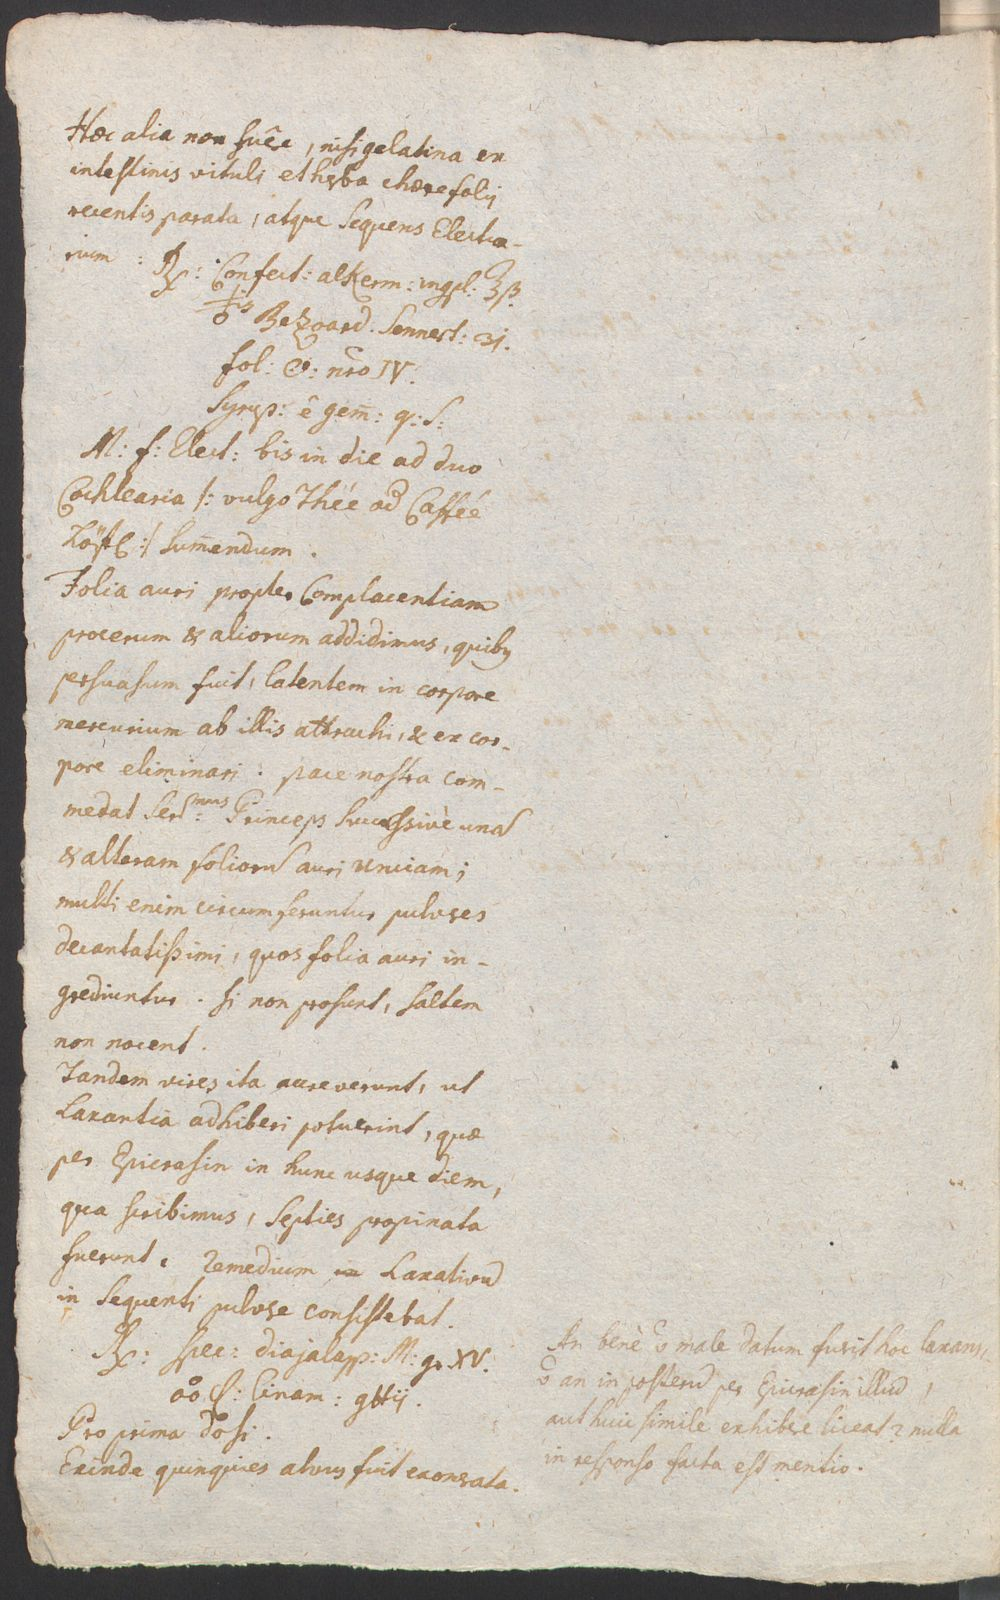 Hæc alia non fuêre, nisi gelatina ex
intestinis vituli et herba chærefolij
recentis parata, atque sequens Electua-
rium : ℞: Confect: alKerm: ingpl: ℥ß.
Bezoard. Sennert: ʒi.
fol: ☉: nro IV.
Syrup: ê gem̄: q: s:
M: f: Elect: bis in die ad duo
Cochlearia /: vulgo Thée od Caffée
Löffel :/ sum̄endum .
Folia auri propter Complacentiam
procerum & aliorum addidimus, quibus
persuasum fuit, latentem in corpore
mercurium ab illis attrachi, & ex cor-
pore eliminari . pace nostra com-
medat Ser:mus Princeps successivè unam
& alteram foliorum auri unciam;
multi enim circumferuntur pulveres
decantatissimi, quos folia auri in-
grediuntur . si non prosunt, saltem
non nocent .
Tandem vires ita accreverunt, ut
Laxantia adhiberi potuerint, quæ
per Epicrasin in hunc usque diem,
qua scribimus, septies propinata
fuerunt . remedium Laxativum
in sequenti pulvere consistebat.
℞: spec: diajalapp: M: gr XV.
Cinam: gttij.
Pro prima dosi .
Exinde quinquies alvus fuit exonerata.
An benè v male datum fuerit hoc laxans,
v an in posterum per Epicrasin illud,
aut huic simile exhibere liceat? nulla
in responso facta est mentio.